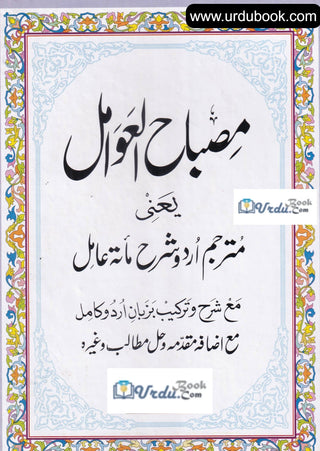 www.urdubook.com
مصباح العوامل
یعنی
مترجم اردو شرح مأتہ عامل
مع شرح و ترکیب بزبان اردو کامل
مع اضافہ مقدمہ و حل مطالب وغیرہ
Urdu Book .Com
Urdu Book .Com